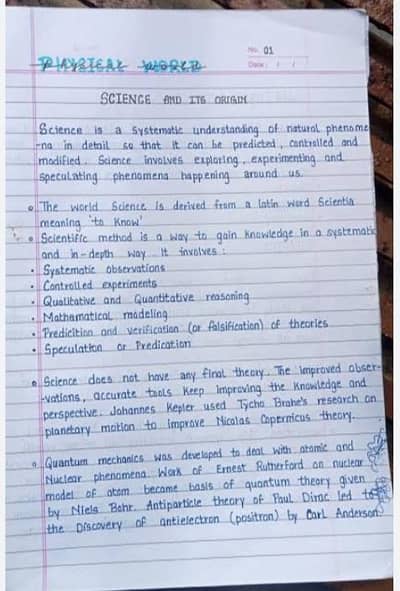 No. 01
Date: / /
PHYSICAL WORLD
SCIENCE AND ITS ORIGIN
Science is a systematic understanding of natural phenome
-na in detail so that it can be predicted, controlled and
modified. Science involves exploring, experimenting and
speculating phenomena happening around us.
The world Science is derived from a latin word Scientia
meaning 'to know'
Scientific method is a way to gain knowledge in a systematic
and in-depth way. It involves :
• Systematic observations
• Controlled experiments
• Qualitative and Quantitative reasoning
• Mathamatical modeling
• Predicition and verification (or falsification) of theories
• Speculation or Predication
Science does not have any final theory. The improved obser-
-vations, accurate tools keep improving the knowledge and
perspective. Johannes Kepler used Tycho Brahe's research on
planetary motion to improve Nicolas Copernicus theory.
Quantum mechanics was developed to deal with atomic and
Nuclear phenomena. Work of Ernest Rutherford on nuclear
model of atom became basis of quantum theory given
by Niels Bohr. Antiparticle theory of Paul Dirac led to
the Discovery of antielectron (positron) by Carl Anderson